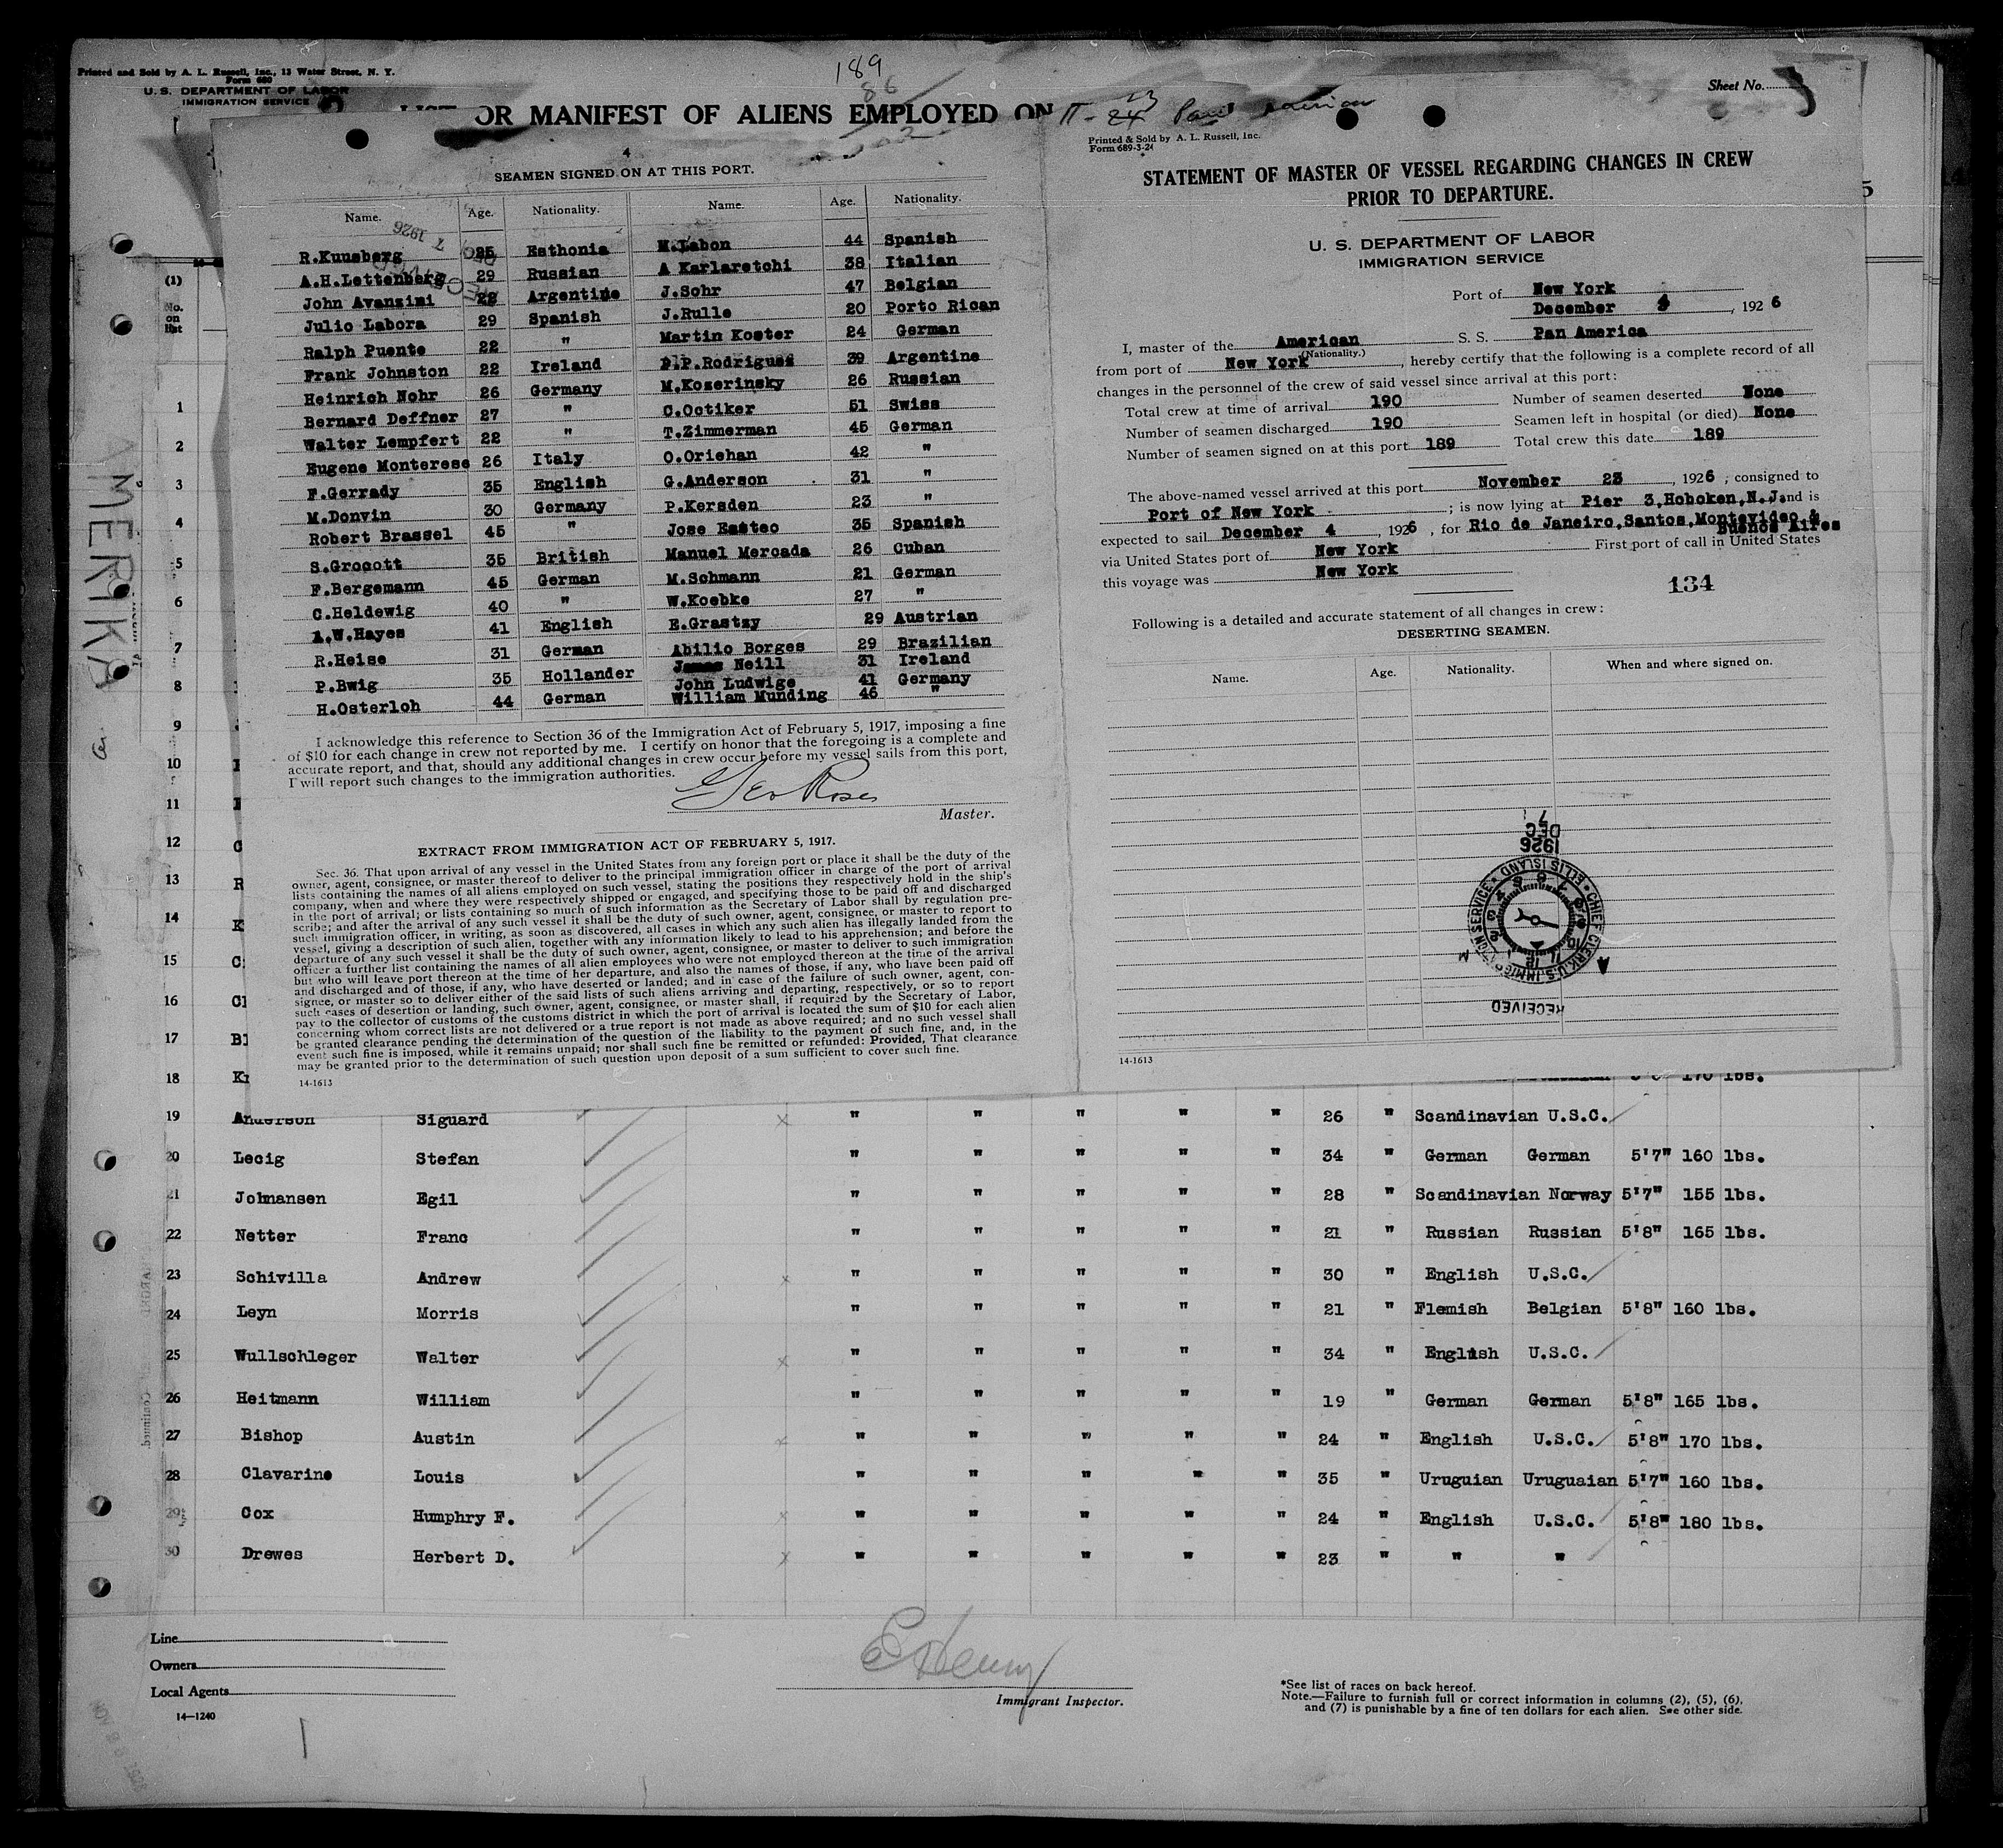 Printed and Sold by A. L. Russell, Inc., 13 Water Street, N. Y.
Form 680
U. S. DEPARTMENT OF LABOR
IMMIGRATION SERVICE
189
86
Sheet No.
OR MANIFEST OF ALIENS EMPLOYED ON
4
SEAMEN SIGNED ON AT THIS PORT.
Name. Age. Nationality. Name. Age. Nationality.
R.Kuusberg 25 Esthonia M.Labon 44 Spanish
A.H.Lettenberg 29 Russian A Karlaretchi 38 Italian
John Avanzini 28 Argentine J.Sohr 47 Belgian
Julio Labora 29 Spanish J.Rulle 20 Porto Rican
Ralph Puente 22 " Martin Koster 24 German
Frank Johnston 22 Ireland P.P.Rodrigues 39 Argentine
Heinrich Nohr 26 Germany M.Kozerinsky 26 Russian
Bernard Deffner 27 " C.Octiker 51 Swiss
Walter Lempfert 22 " T.Zimmerman 45 German
Eugene Monterese 26 Italy O.Oriehan 42 "
F.Gerrady 35 English G.Anderson 31 "
M.Donvin 30 Germany P.Kersden 23 "
Robert Brassel 45 " Jose Easteo 35 Spanish
S.Grocott 35 British Manuel Mercada 26 Cuban
F.Bergemann 45 German M.Schmann 21 German
C.Heldewig 40 " W.Koebke 27 "
A.W.Hayes 41 English E.Grastzy 29 Austrian
R.Heise 31 German Abilio Borges 29 Brazilian
James Neill 31 Ireland
P.Bwig 35 Hollander John Ludwige 41 Germany
H.Osterloh 44 German William Munding 46 "
I acknowledge this reference to Section 36 of the Immigration Act of February 5, 1917, imposing a fine
of $10 for each change in crew not reported by me. I certify on honor that the foregoing is a complete and
accurate report, and that, should any additional changes in crew occur before my vessel sails from this port,
I will report such changes to the immigration authorities.
Geo Rose
Master.
EXTRACT FROM IMMIGRATION ACT OF FEBRUARY 5, 1917.
Sec. 36. That upon arrival of any vessel in the United States from any foreign port or place it shall be the duty of the
owner, agent, consignee, or master thereof to deliver to the principal immigration officer in charge of the port of arrival
lists containing the names of all aliens employed on such vessel, stating the positions they respectively hold in the ship's
company, when and where they were respectively shipped or engaged, and specifying those to be paid off and discharged
in the port of arrival; or lists containing so much of such information as the Secretary of Labor shall by regulation pre-
scribe; and after the arrival of any such vessel it shall be the duty of such owner, agent, consignee, or master to report to
such immigration officer, in writing, as soon as discovered, all cases in which any such alien has illegally landed from the
vessel, giving a description of such alien, together with any information likely to lead to his apprehension; and before the
departure of any such vessel it shall be the duty of such owner, agent, consignee, or master to deliver to such immigration
officer a further list containing the names of all alien employees who were not employed thereon at the time of the arrival
but who will leave port thereon at the time of her departure, and also the names of those, if any, who have been paid off
and discharged and of those, if any, who have deserted or landed; and in case of the failure of such owner, agent, con-
signee, or master so to deliver either of the said lists of such aliens arriving and departing, respectively, or so to report
such cases of desertion or landing, such owner, agent, consignee, or master shall, if required by the Secretary of Labor,
pay to the collector of customs of the customs district in which the port of arrival is located the sum of $10 for each alien
concerning whom correct lists are not delivered or a true report is not made as above required; and no such vessel shall
be granted clearance pending the determination of the question of the liability to the payment of such fine, and, in the
event such fine is imposed, while it remains unpaid; nor shall such fine be remitted or refunded: Provided, That clearance
may be granted prior to the determination of such question upon deposit of a sum sufficient to cover such fine.
14-1613
Printed & Sold by A. L. Russell, Inc.
Form 689-3-24
STATEMENT OF MASTER OF VESSEL REGARDING CHANGES IN CREW
PRIOR TO DEPARTURE.
U. S. DEPARTMENT OF LABOR
IMMIGRATION SERVICE
Port of New York
December 4, 1926
I, master of the American S. S. Pan America
(Nationality.)
from port of New York, hereby certify that the following is a complete record of all
changes in the personnel of the crew of said vessel since arrival at this port:
Total crew at time of arrival 190 Number of seamen deserted None
Number of seamen discharged 190 Seamen left in hospital (or died) None
Number of seamen signed on at this port 189 Total crew this date 189
The above-named vessel arrived at this port November 23, 1926; consigned to
Port of New York; is now lying at Pier 3,Hoboken,N.J. and is
expected to sail December 4, 1926, for Rio de Janeiro,Santos,Montevideo &
Buenos Aires
via United States port of New York First port of call in United States
this voyage was New York
134
Following is a detailed and accurate statement of all changes in crew:
DESERTING SEAMEN.
Name. Age. Nationality. When and where signed on.
7
DEC
1926
CHIEF CLERK, U.S. IMMIGRATION SERVICE ELLIS ISLAND
RECEIVED
14-1613
AMERIKA
(1)
No.
on
list
1
2
3
4
5
6
7
8
9
10
11
12 C
13 R
14 K
15 C
16 Cl
17 Bl
18 Kr 170 lbs.
19 Anderson Siguard " " " " " 26 " Scandinavian U.S.C.
20 Lecig Stefan " " " " " 34 " German German 5'7" 160 lbs.
21 Johnansen Egil " " " " " 28 " Scandinavian Norway 5'7" 155 lbs.
22 Netter Franc " " " " " 21 " Russian Russian 5'8" 165 lbs.
23 Schivilla Andrew " " " " " 30 " English U.S.C.
24 Leyn Morris " " " " " 21 " Flemish Belgian 5'8" 160 lbs.
25 Wullschleger Walter " " " " " 34 " English U.S.C.
26 Heitmann William " " " " " 19 " German German 5'8" 165 lbs.
27 Bishop Austin " " " " " 24 " English U.S.C. 5'8" 170 lbs.
28 Clavarine Louis " " " " " 35 " Uruguian Uruguaian 5'7" 160 lbs.
29 Cox Humphry F. " " " " " 24 " English U.S.C. 5'8" 180 lbs.
30 Drewes Herbert D. " " " " " 23 " " "
Line
Owners
Local Agents
14—1240
Immigrant Inspector.
*See list of races on back hereof.
Note.—Failure to furnish full or correct information in columns (2), (5), (6),
and (7) is punishable by a fine of ten dollars for each alien. See other side.